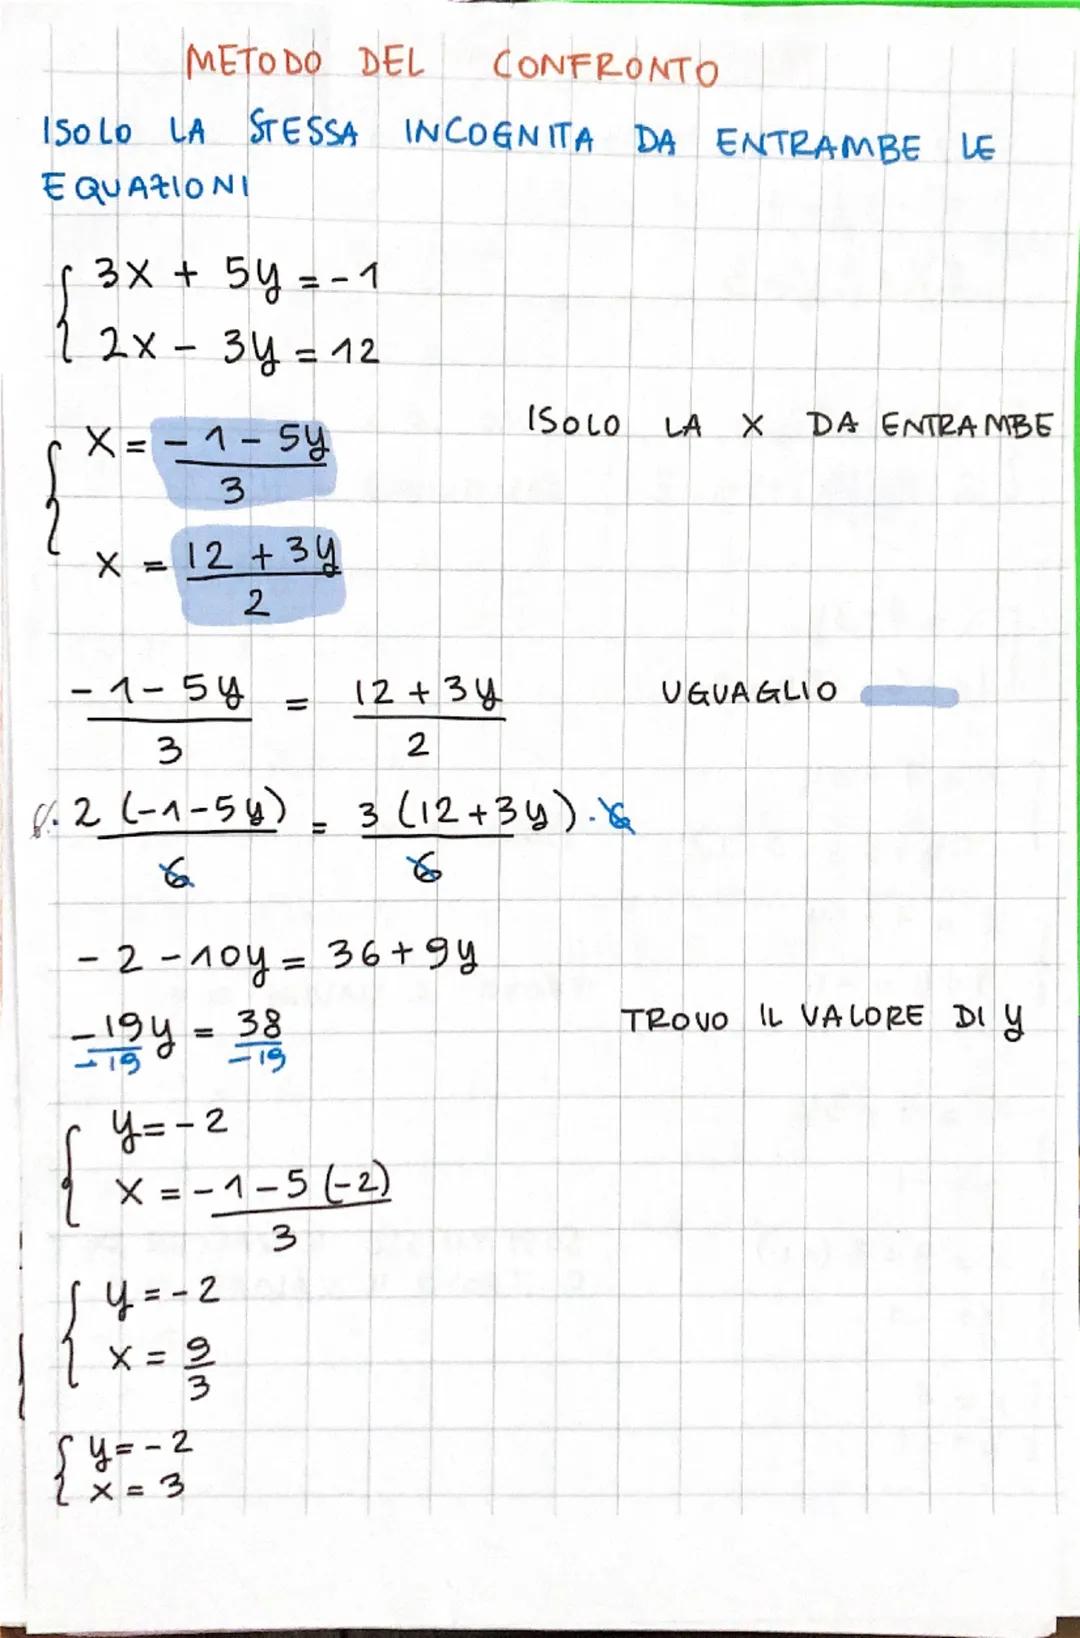 METODO DEL CONFRONTO
ISOLO LA STESSA INCOGNITA DA ENTRAMBE LE
EQUAZIONI
3x + 5y = -1
2x - 3y = 12
x = -1-5y
3
ISOLO LA X DA ENTRAMBE
x = 12 + 3y
2
-1-5y = 12 + 3y
3 2
UGUAGLIO
2 (-1-5y) = 3 (12+3y) · 6
6 6
-2 -10y = 36 + 9y
-19y = 38
-19 -19
TROVO IL VALORE DI y
y = -2
x = -1-5 (-2)
3
y = -2
x = 9
3
y = -2
x = 3